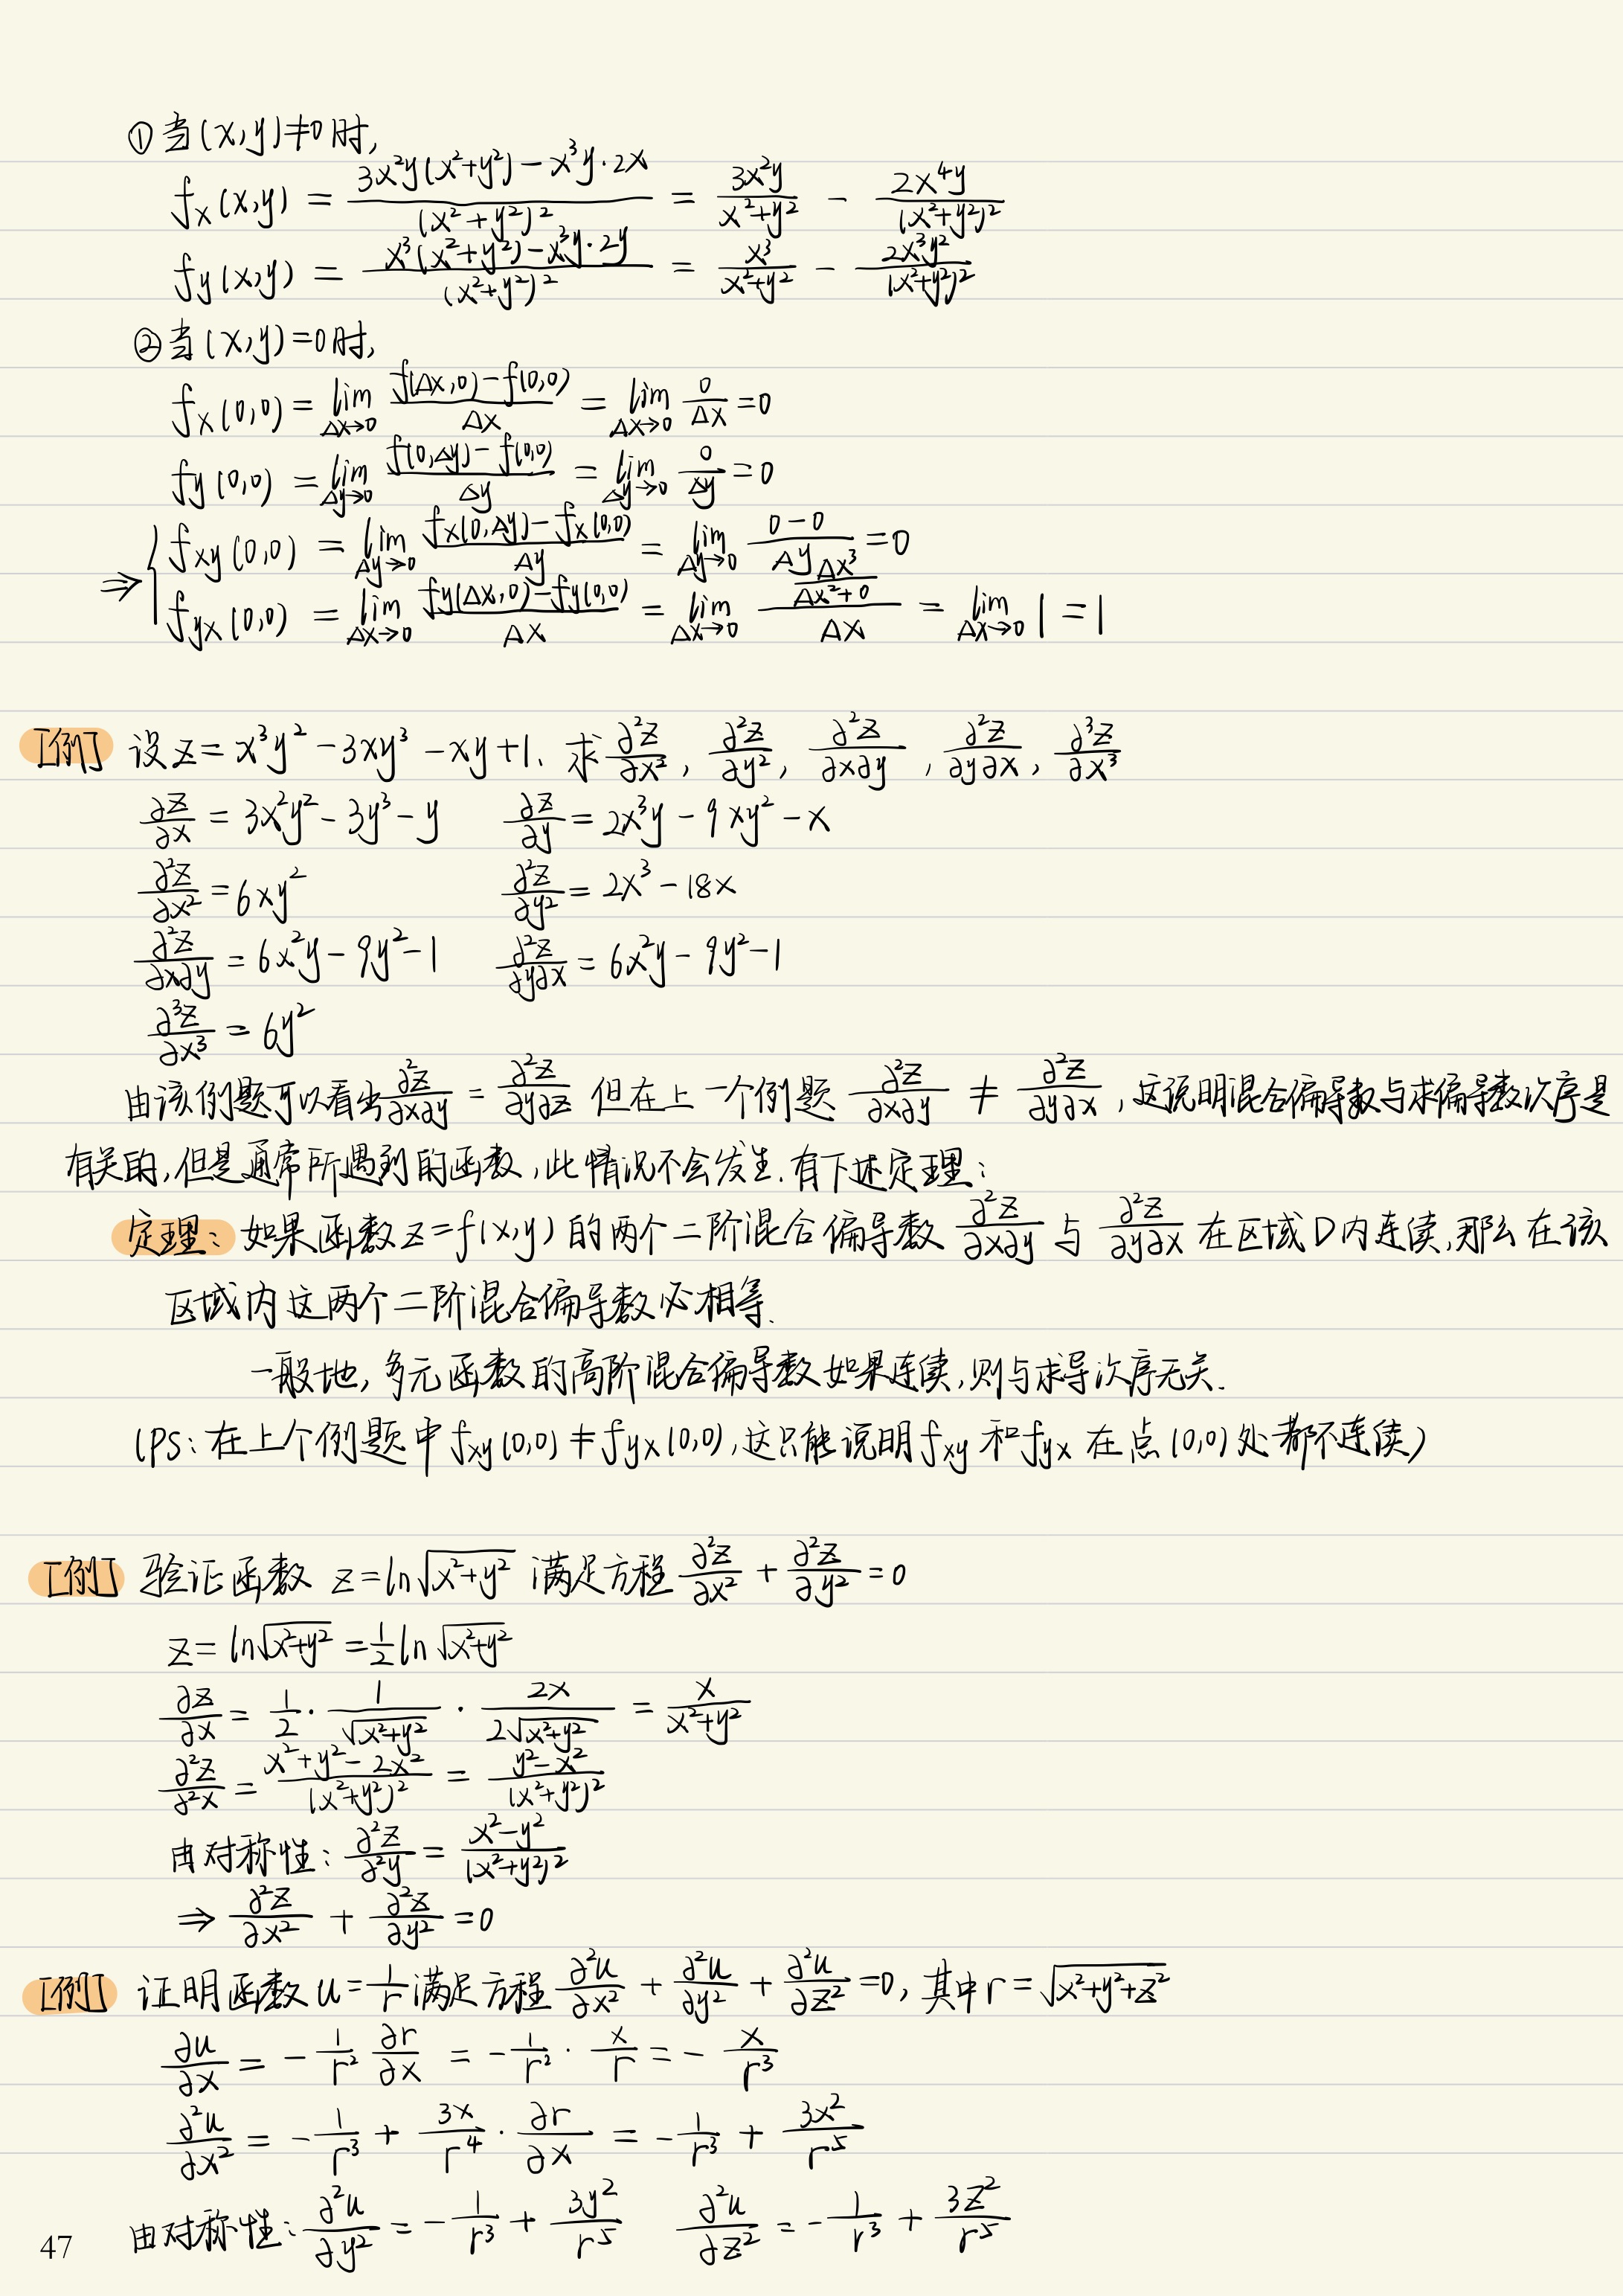 ①当(x,y)≠0时,
f_x(x,y) = \frac{3x^2y(x^2+y^2)-x^3y·2x}{(x^2+y^2)^2} = \frac{3x^2y}{x^2+y^2} - \frac{2x^4y}{(x^2+y^2)^2}
f_y(x,y) = \frac{x^3(x^2+y^2)-x^3y·2y}{(x^2+y^2)^2} = \frac{x^3}{x^2+y^2} - \frac{2x^3y^2}{(x^2+y^2)^2}
②当(x,y)=0时,
f_x(0,0) = \lim_{Δx→0} \frac{f(Δx,0)-f(0,0)}{Δx} = \lim_{Δx→0} \frac{0}{Δx} = 0
f_y(0,0) = \lim_{Δy→0} \frac{f(0,Δy)-f(0,0)}{Δy} = \lim_{Δy→0} \frac{0}{Δy} = 0
⇒ { f_{xy}(0,0) = \lim_{Δy→0} \frac{f_x(0,Δy)-f_x(0,0)}{Δy} = \lim_{Δy→0} \frac{0-0}{Δy} = 0
f_{yx}(0,0) = \lim_{Δx→0} \frac{f_y(Δx,0)-f_y(0,0)}{Δx} = \lim_{Δx→0} \frac{\frac{Δx^3}{Δx^2+0}}{Δx} = \lim_{Δx→0} 1 = 1
[例] 设z = x^3y^2-3xy^3-xy+1. 求\frac{∂^2z}{∂x^2}, \frac{∂^2z}{∂y^2}, \frac{∂^2z}{∂x∂y}, \frac{∂^2z}{∂y∂x}, \frac{∂^3z}{∂x^3}
\frac{∂z}{∂x} = 3x^2y^2-3y^3-y \frac{∂z}{∂y} = 2x^3y-9xy^2-x
\frac{∂^2z}{∂x^2} = 6xy^2 \frac{∂^2z}{∂y^2} = 2x^3-18x
\frac{∂^2z}{∂x∂y} = 6x^2y-9y^2-1 \frac{∂^2z}{∂y∂x} = 6x^2y-9y^2-1
\frac{∂^3z}{∂x^3} = 6y^2
由该例题可以看出\frac{∂^2z}{∂x∂y} = \frac{∂^2z}{∂y∂z} 但在上一个例题 \frac{∂^2z}{∂x∂y} ≠ \frac{∂^2z}{∂y∂x}, 这说明混合偏导数与求偏导数次序是
有关的, 但是通常所遇到的函数, 此情况不会发生. 有下述定理:
定理: 如果函数z=f(x,y)的两个二阶混合偏导数\frac{∂^2z}{∂x∂y}与\frac{∂^2z}{∂y∂x}在区域D内连续, 那么在该
区域内这两个二阶混合偏导数必相等.
一般地, 多元函数的高阶混合偏导数如果连续, 则与求导次序无关.
(PS: 在上个例题中f_{xy}(0,0)≠f_{yx}(0,0), 这只能说明f_{xy}和f_{yx}在点(0,0)处都不连续)
[例] 验证函数 z=ln\sqrt{x^2+y^2} 满足方程\frac{∂^2z}{∂x^2} + \frac{∂^2z}{∂y^2} = 0
z = ln\sqrt{x^2+y^2} = \frac{1}{2}ln\sqrt{x^2+y^2}
\frac{∂z}{∂x} = \frac{1}{2}·\frac{1}{\sqrt{x^2+y^2}}·\frac{2x}{2\sqrt{x^2+y^2}} = \frac{x}{x^2+y^2}
\frac{∂^2z}{∂^2x} = \frac{x^2+y^2-2x^2}{(x^2+y^2)^2} = \frac{y^2-x^2}{(x^2+y^2)^2}
由对称性: \frac{∂^2z}{∂^2y} = \frac{x^2-y^2}{(x^2+y^2)^2}
⇒ \frac{∂^2z}{∂x^2} + \frac{∂^2z}{∂y^2} = 0
[例] 证明函数u=\frac{1}{r}满足方程\frac{∂^2u}{∂x^2} + \frac{∂^2u}{∂y^2} + \frac{∂^2u}{∂z^2} = 0, 其中r=\sqrt{x^2+y^2+z^2}
\frac{∂u}{∂x} = -\frac{1}{r^2}\frac{∂r}{∂x} = -\frac{1}{r^2}·\frac{x}{r} = -\frac{x}{r^3}
\frac{∂^2u}{∂x^2} = -\frac{1}{r^3} + \frac{3x}{r^4}·\frac{∂r}{∂x} = -\frac{1}{r^3} + \frac{3x^2}{r^5}
由对称性: \frac{∂^2u}{∂y^2} = -\frac{1}{r^3} + \frac{3y^2}{r^5} \frac{∂^2u}{∂z^2} = -\frac{1}{r^3} + \frac{3z^2}{r^5}
47